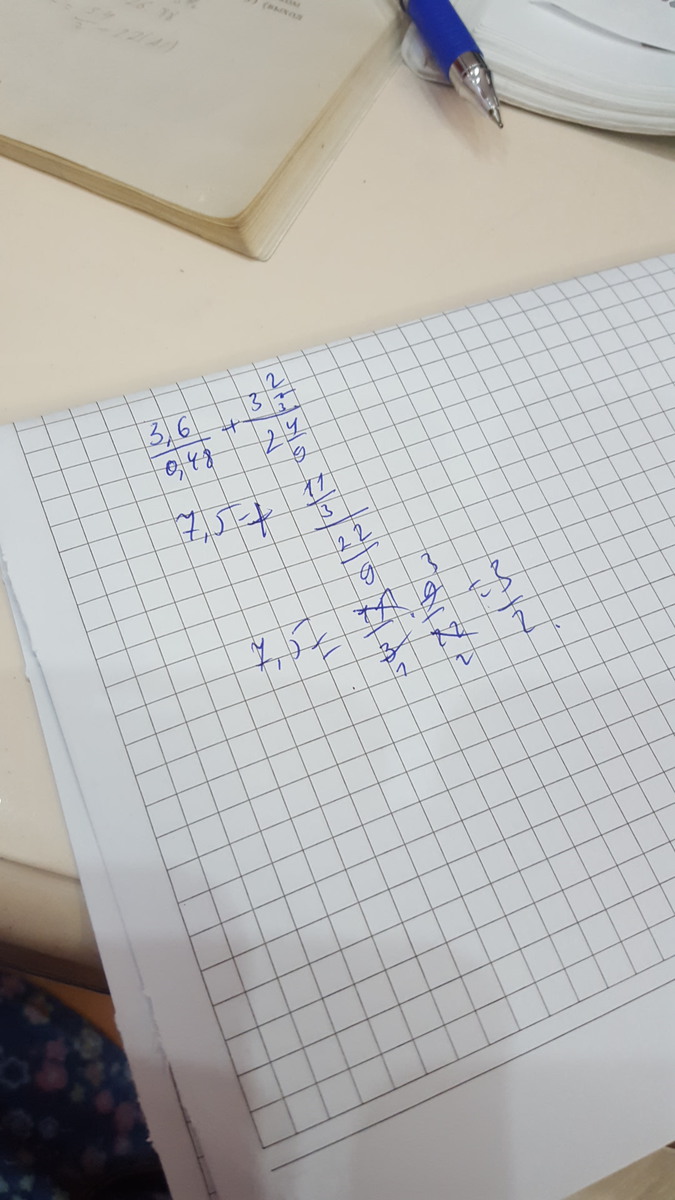 3,6/0,48 + 3 2/3 / 2 4/9
7,5 + 11/3 / 22/9
7,5 = 11/3 1 · 9 3/22 2 = 3/2.